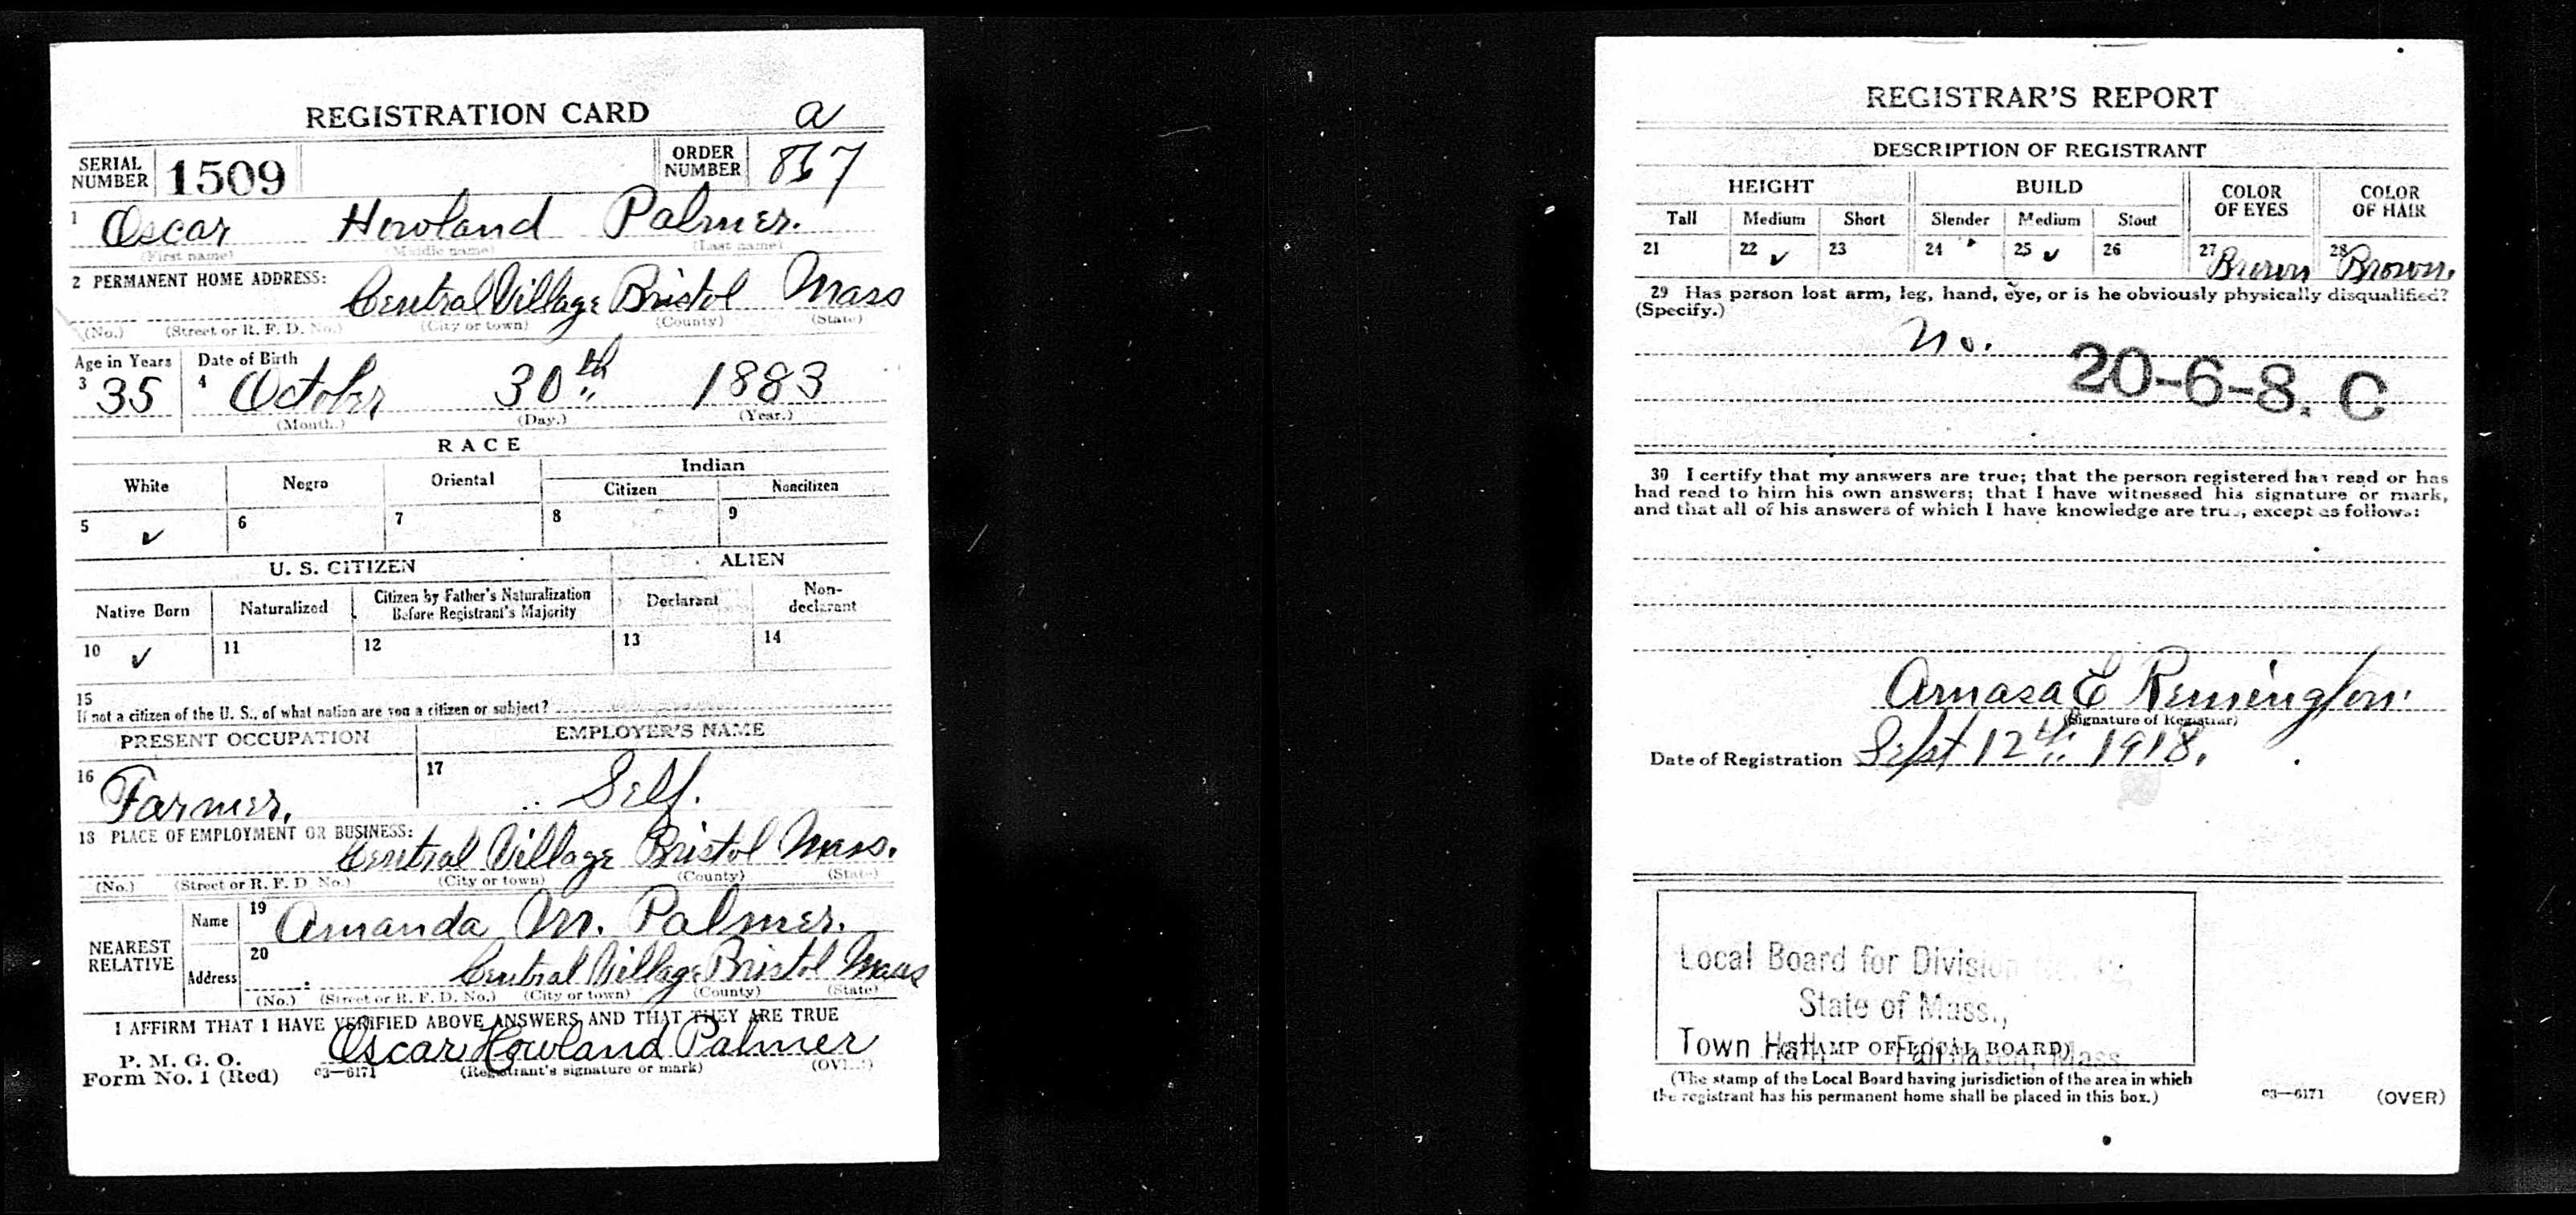 REGISTRATION CARD a
SERIAL NUMBER 1509 ORDER NUMBER
1 Oscar Howland Palmer.
(First name) (Middle name) (Last name)
2 PERMANENT HOME ADDRESS:
Central Village Bristol Mass
(No.) (Street or R. F. D. No.) (City or town) (County) (State)
Age in Years Date of Birth
3 35 4 October 30th 1883
(Month.) (Day.) (Year.)
RACE
White Negro Oriental Indian
Citizen Noncitizen
5 ✓ 6 7 8 9
U. S. CITIZEN ALIEN
Native Born Naturalized Citizen by Father's Naturalization Before Registrant's Majority Declarant Non-declarant
10 ✓ 11 12 13 14
15
If not a citizen of the U. S., of what nation are you a citizen or subject?
PRESENT OCCUPATION EMPLOYER'S NAME
16 Farmer. 17 Self.
18 PLACE OF EMPLOYMENT OR BUSINESS:
Central Village Bristol Mass.
(No.) (Street or R. F. D. No.) (City or town) (County) (State)
NEAREST RELATIVE
Name 19 Amanda M. Palmer.
Address 20 Central Village Bristol Mass
(No.) (Street or R. F. D. No.) (City or town) (County) (State)
I AFFIRM THAT I HAVE VERIFIED ABOVE ANSWERS AND THAT THEY ARE TRUE
P. M. G. O.
Form No. 1 (Red) c3—6171 Oscar Howland Palmer
(Registrant's signature or mark) (OVER)
REGISTRAR'S REPORT
DESCRIPTION OF REGISTRANT
HEIGHT BUILD COLOR OF EYES COLOR OF HAIR
Tall Medium Short Slender Medium Stout
21 22 ✓ 23 24 25 ✓ 26 27 Brown 28 Brown.
29 Has person lost arm, leg, hand, eye, or is he obviously physically disqualified?
(Specify.)
No.
20-6-8. C
30 I certify that my answers are true; that the person registered has read or has
had read to him his own answers; that I have witnessed his signature or mark,
and that all of his answers of which I have knowledge are true, except as follows:
Amasa E Remington.
(Signature of Registrar)
Date of Registration Sept 12th 1918.
Local Board for Division
State of Mass.,
Town Hall, Fairhaven, Mass.
(STAMP OF LOCAL BOARD)
(The stamp of the Local Board having jurisdiction of the area in which
the registrant has his permanent home shall be placed in this box.)
c3—6171 (OVER)